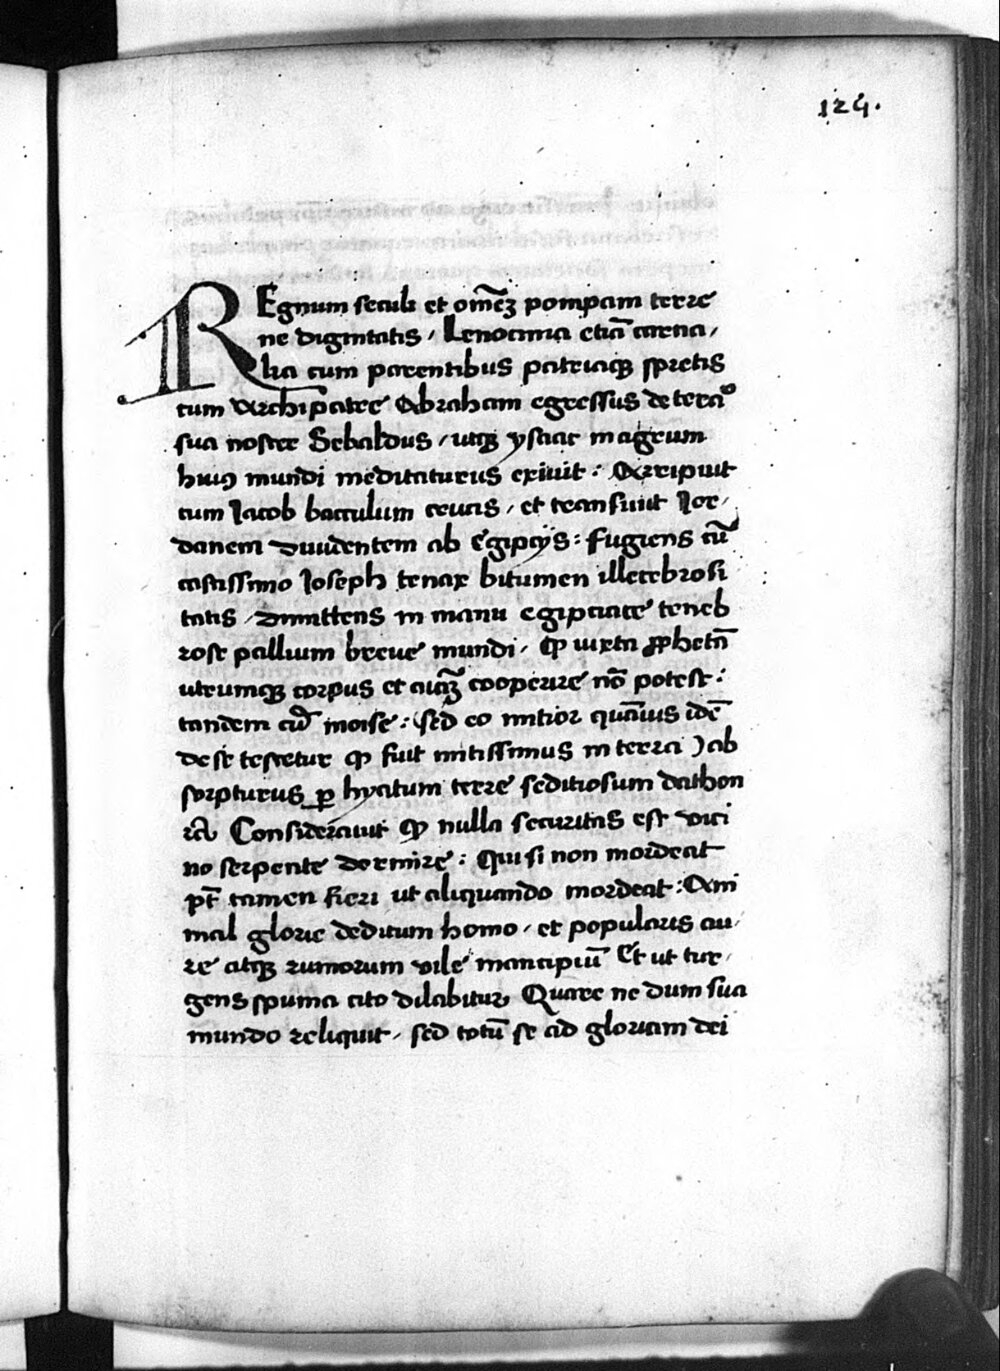 124.
REgnum seculi et om̄eʒ pompam terre
ne dignitatis / Lenocinia etiā carna /
lia cum parentibus patriaqʒ spretis
cum Archipatre Abraham egressus de terra
sua noster Sebaldus / utqʒ ysaac magnum
huiꝰ mundi meditaturus exiuit : Arripuit
cum Jacob bacculum crucis / et transiuit Jor /
danem diuidentem ab Egipcijs : fugiens cū
castissimo Joseph tenax bitumen illecebrosi
tatis / dimittens in manu egiptiace teneb
rose pallium breue mundi / ꝙ iuxta ꝓphetā
utrumqʒ corpus et aīaʒ cooperire nō potest :
tandem cū moise : sed eo mitior quāuis idē
de se testetur ꝙ fuit mitissimus in terra ) ab
sorpturus ꝑ hyatum terre seditiosum dathon
Considerauit ꝙ nulla securitas est vici
no serpente dormire : Qui si non mordeat
pt̄ tamen fieri ut aliquando mordeat : Ani
mal glorie deditum homo / et popularis au /
re atqʒ rumorum vile mancipiū Et ut tur /
gens spuma cito dilabitur Quare ne dum sua
mundo reliquit / sed totū se ad gloriam dei